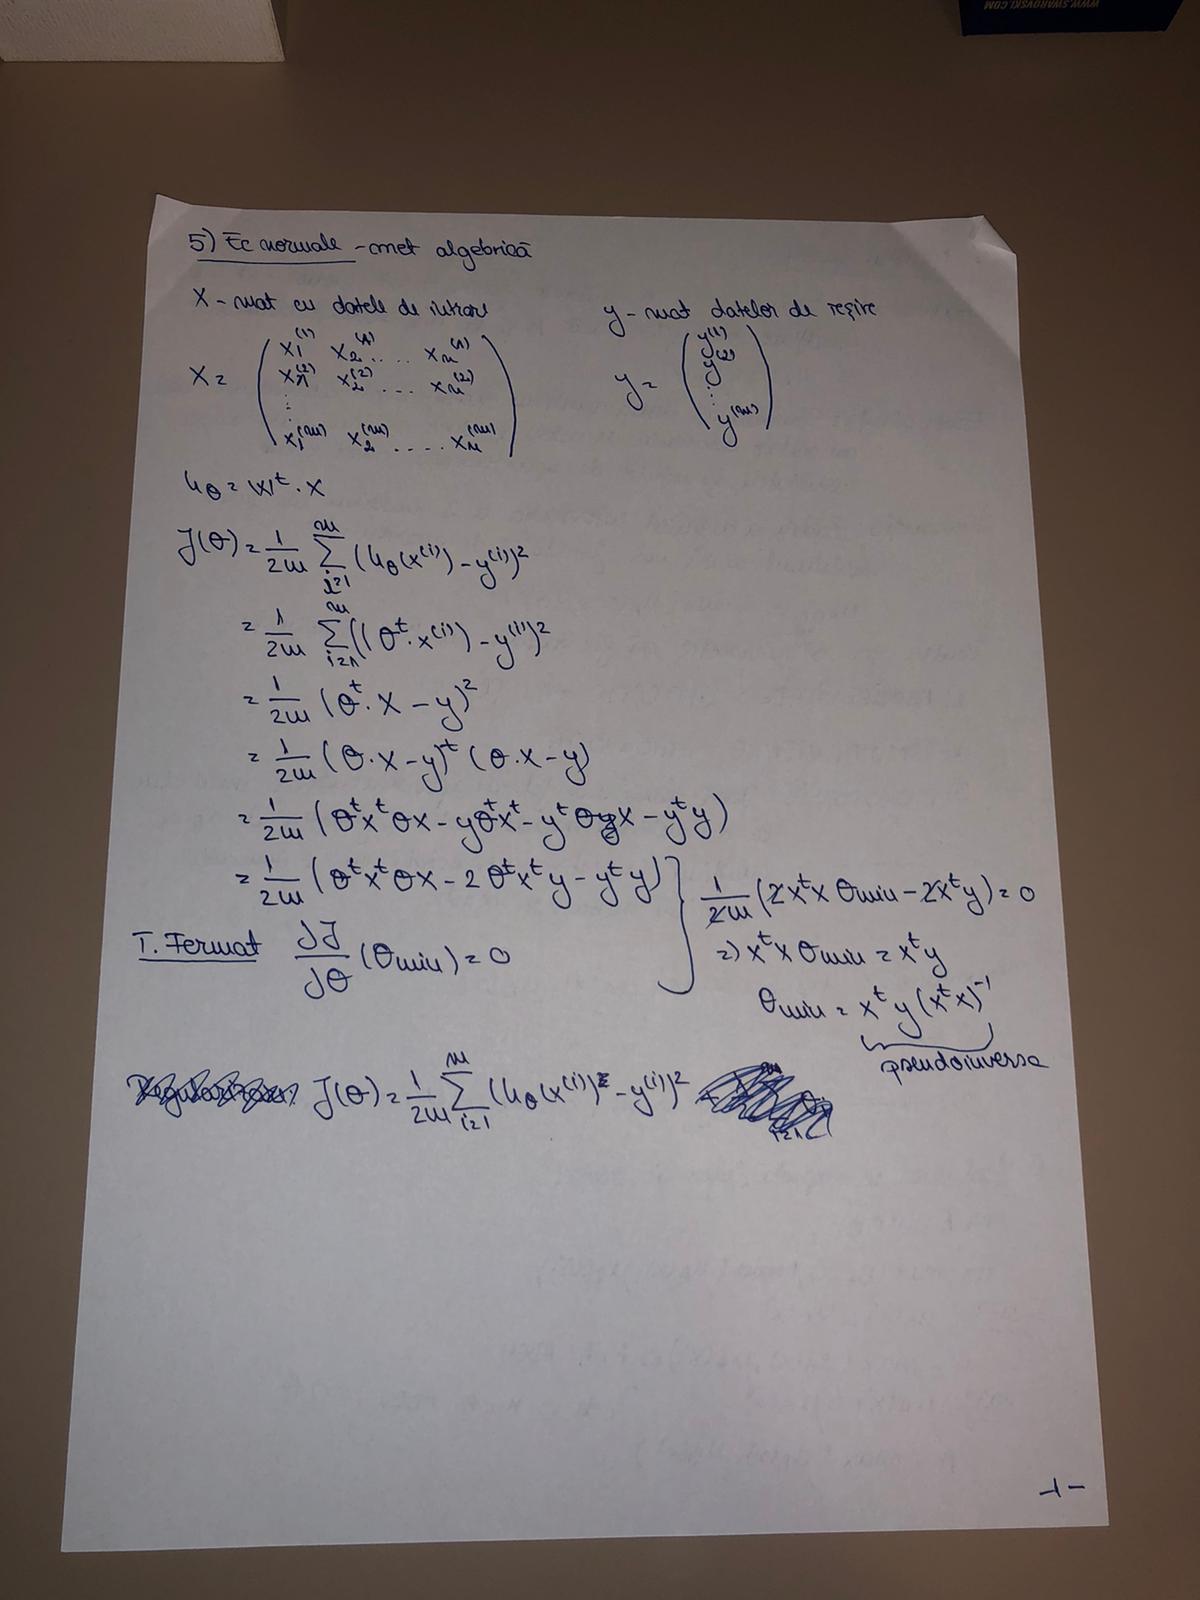 WWW.SWAROVSKI.COM
5) Ec normale - met algebrică
X - mat cu datele de intrare
y - mat datelor de ieșire
X = ( x₁⁽¹⁾ x₂⁽¹⁾ ... xₙ⁽¹⁾
x₁⁽²⁾ x₂⁽²⁾ ... xₙ⁽²⁾
...
x₁⁽ᵐ⁾ x₂⁽ᵐ⁾ .... xₙ⁽ᵐ⁾ )
y = ( y⁽¹⁾
y⁽²⁾
...
y⁽ᵐ⁾ )
h_θ = Wᵗ · X
J(θ) = 1/2m Σ_{i=1}^{m} (h_θ(x⁽ⁱ⁾) - y⁽ⁱ⁾)²
= 1/2m Σ_{i=1}^{m} ((θᵗ · x⁽ⁱ⁾) - y⁽ⁱ⁾)²
= 1/2m (θᵗ · X - y)²
= 1/2m (θ · X - y)ᵗ (θ · X - y)
= 1/2m (θᵗxᵗθx - yθᵗxᵗ - yᵗθx - yᵗy)
= 1/2m (θᵗxᵗθx - 2θᵗxᵗy - yᵗy)
T. Fermat ∂J/∂θ (θmin) = 0
1/2m (2xᵗx θmin - 2xᵗy) = 0
=) xᵗx θmin = xᵗy
θmin = xᵗy (xᵗx)⁻¹
pseudoinversa
J(θ) = 1/2m Σ_{i=1}^{m} (h_θ(x⁽ⁱ⁾) - y⁽ⁱ⁾)²
-1-